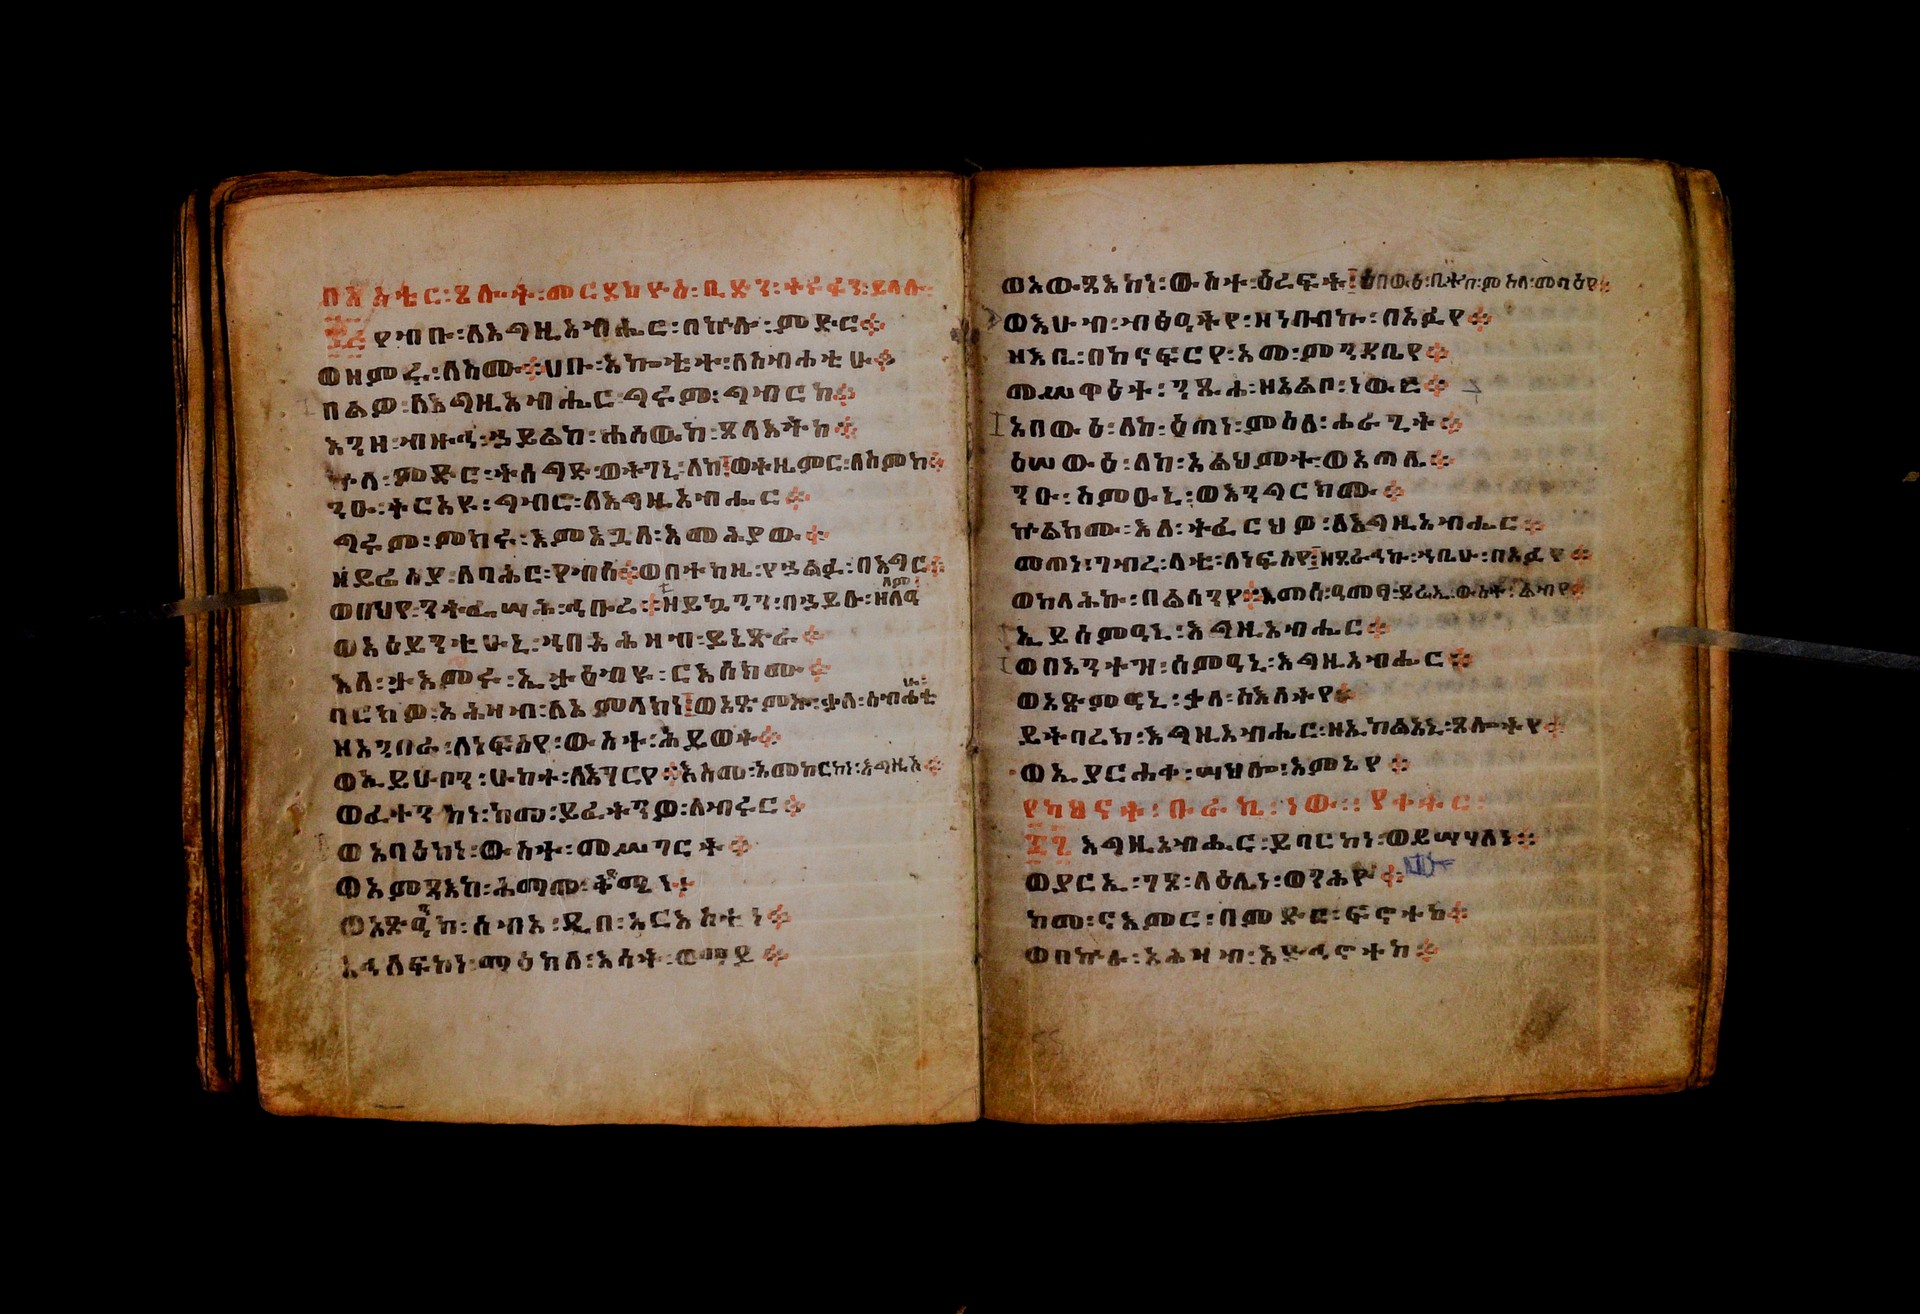 ፷፭ የብቡ፡ለእግዚአብሔር፡በኵሉ፡ምድር።
ወዘምሩ፡ለስሙ።ሀቡ፡አኰቴተ፡ለስብሐቲሁ።
በልዎ፡ለእግዚአብሔር፡ግሩም፡ግብርከ።
እንዘ፡ብዙኅ፡ኀይልከ፡ሐሰውከ፡ጸላእትከ።
ኵላ፡ምድር፡ትሰግድ፡ወትገኒ፡ለከ፤ወትዜምር፡ለስምከ።
ንዑ፡ትርአዩ፡ግብሮ፡ለእግዚአብሔር።
ግሩም፡ምክሩ፡እምእጓለ፡እመሕያው።
ዘይሬስያ፡ለባሕር፡የብሰ።ወበተከዜ፡የኀልፉ፡በእግር።
ወበህየ፡ንትፌሣሕ፡ኅቡረ።ዘይኴንን፡በኀይሉ፡ዘለዓለም፡
ወአዕይንቲሁኒ፡ኀበ፡አሕዛብ፡ይኔጽራ።
እለ፡ታአምሩ፡ኢታዕብዩ፡ርእሰክሙ።
ባርክዎ፡አሕዛብ፡ለአምላክነ፤ወአጽምኡ፡ቃለ፡ስብሐቲሁ፡
ዘአንበራ፡ለነፍስየ፡ውስተ፡ሕይወት።
ወኢይሁቦን፡ሁከተ፡ለእገርየ።እስመ፡አመከርከነ፡እግዚአ።
ወፈተንከነ፡ከመ፡ይፈትንዎ፡ለብሩር።
ወአባዕከነ፡ውስተ፡መሥገርት።
ወአምጻእከ፡ሕማመ፡ቅድሜነ።
ወአጽዓንከ፡ሰብአ፡ዲበ፡አርእስቲነ።
አኅለፍከነ፡ማዕከለ፡እሳት፡ወማይ።
ወአውጻእከነ፡ውስተ፡ዕረፍት፤እበውዕ፡ቤተከ፡ምስለ፡መባዕየ።
ወእሁብ፡ብፅዓትየ፡ዘነበብኩ፡በአፉየ።
ዘእቤ፡በከናፍርየ፡አመ፡ምንዳቤየ።
መሥዋዕተ፡ንጹሐ፡ዘአልቦ፡ነውር።
አበውዕ፡ለከ፡ዕጣነ፡ምስለ፡ሐራጊት።
እሠውዕ፡ለከ፡አልህምተ፡ወአጣሌ።
ንዑ፡ስምዑኒ፡ወእንግርክሙ።
ኵልክሙ፡እለ፡ትፈርህዎ፡ለእግዚአብሔር።
መጠነ፡ገብረ፡ላቲ፡ለነፍስየ፤ዘጸራኅኩ፡ኀቤሁ፡በአፉየ።
ወከላሕኩ፡በልሳንየ።እመሰ፡ዓመፃ፡ይሬኢ፡ውስተ፡ልብየ።
ኢይስምዓኒ፡እግዚአብሔር።
ወበእንተዝ፡ሰምዓኒ፡እግዚአብሔር።
ወአጽምዓኒ፡ቃለ፡ስእለትየ።
ይትባረክ፡እግዚአብሔር፡ዘኢከልአኒ፡ጸሎትየ።
ወኢያርሐቀ፡ሣህሎ፡እምኔየ።
የካህናት፡ቡራኬ፡ነው፡
፷፮ እግዚአብሔር፡ይባርከነ፡ወይሣሃለነ።
ወያርኢ፡ገጸ፡ላዕሌነ፡ወንሕየው።
ከመ፡ናእምር፡በምድር፡ፍኖተከ።
ወበኵሉ፡አሕዛብ፡አድኅኖተከ።